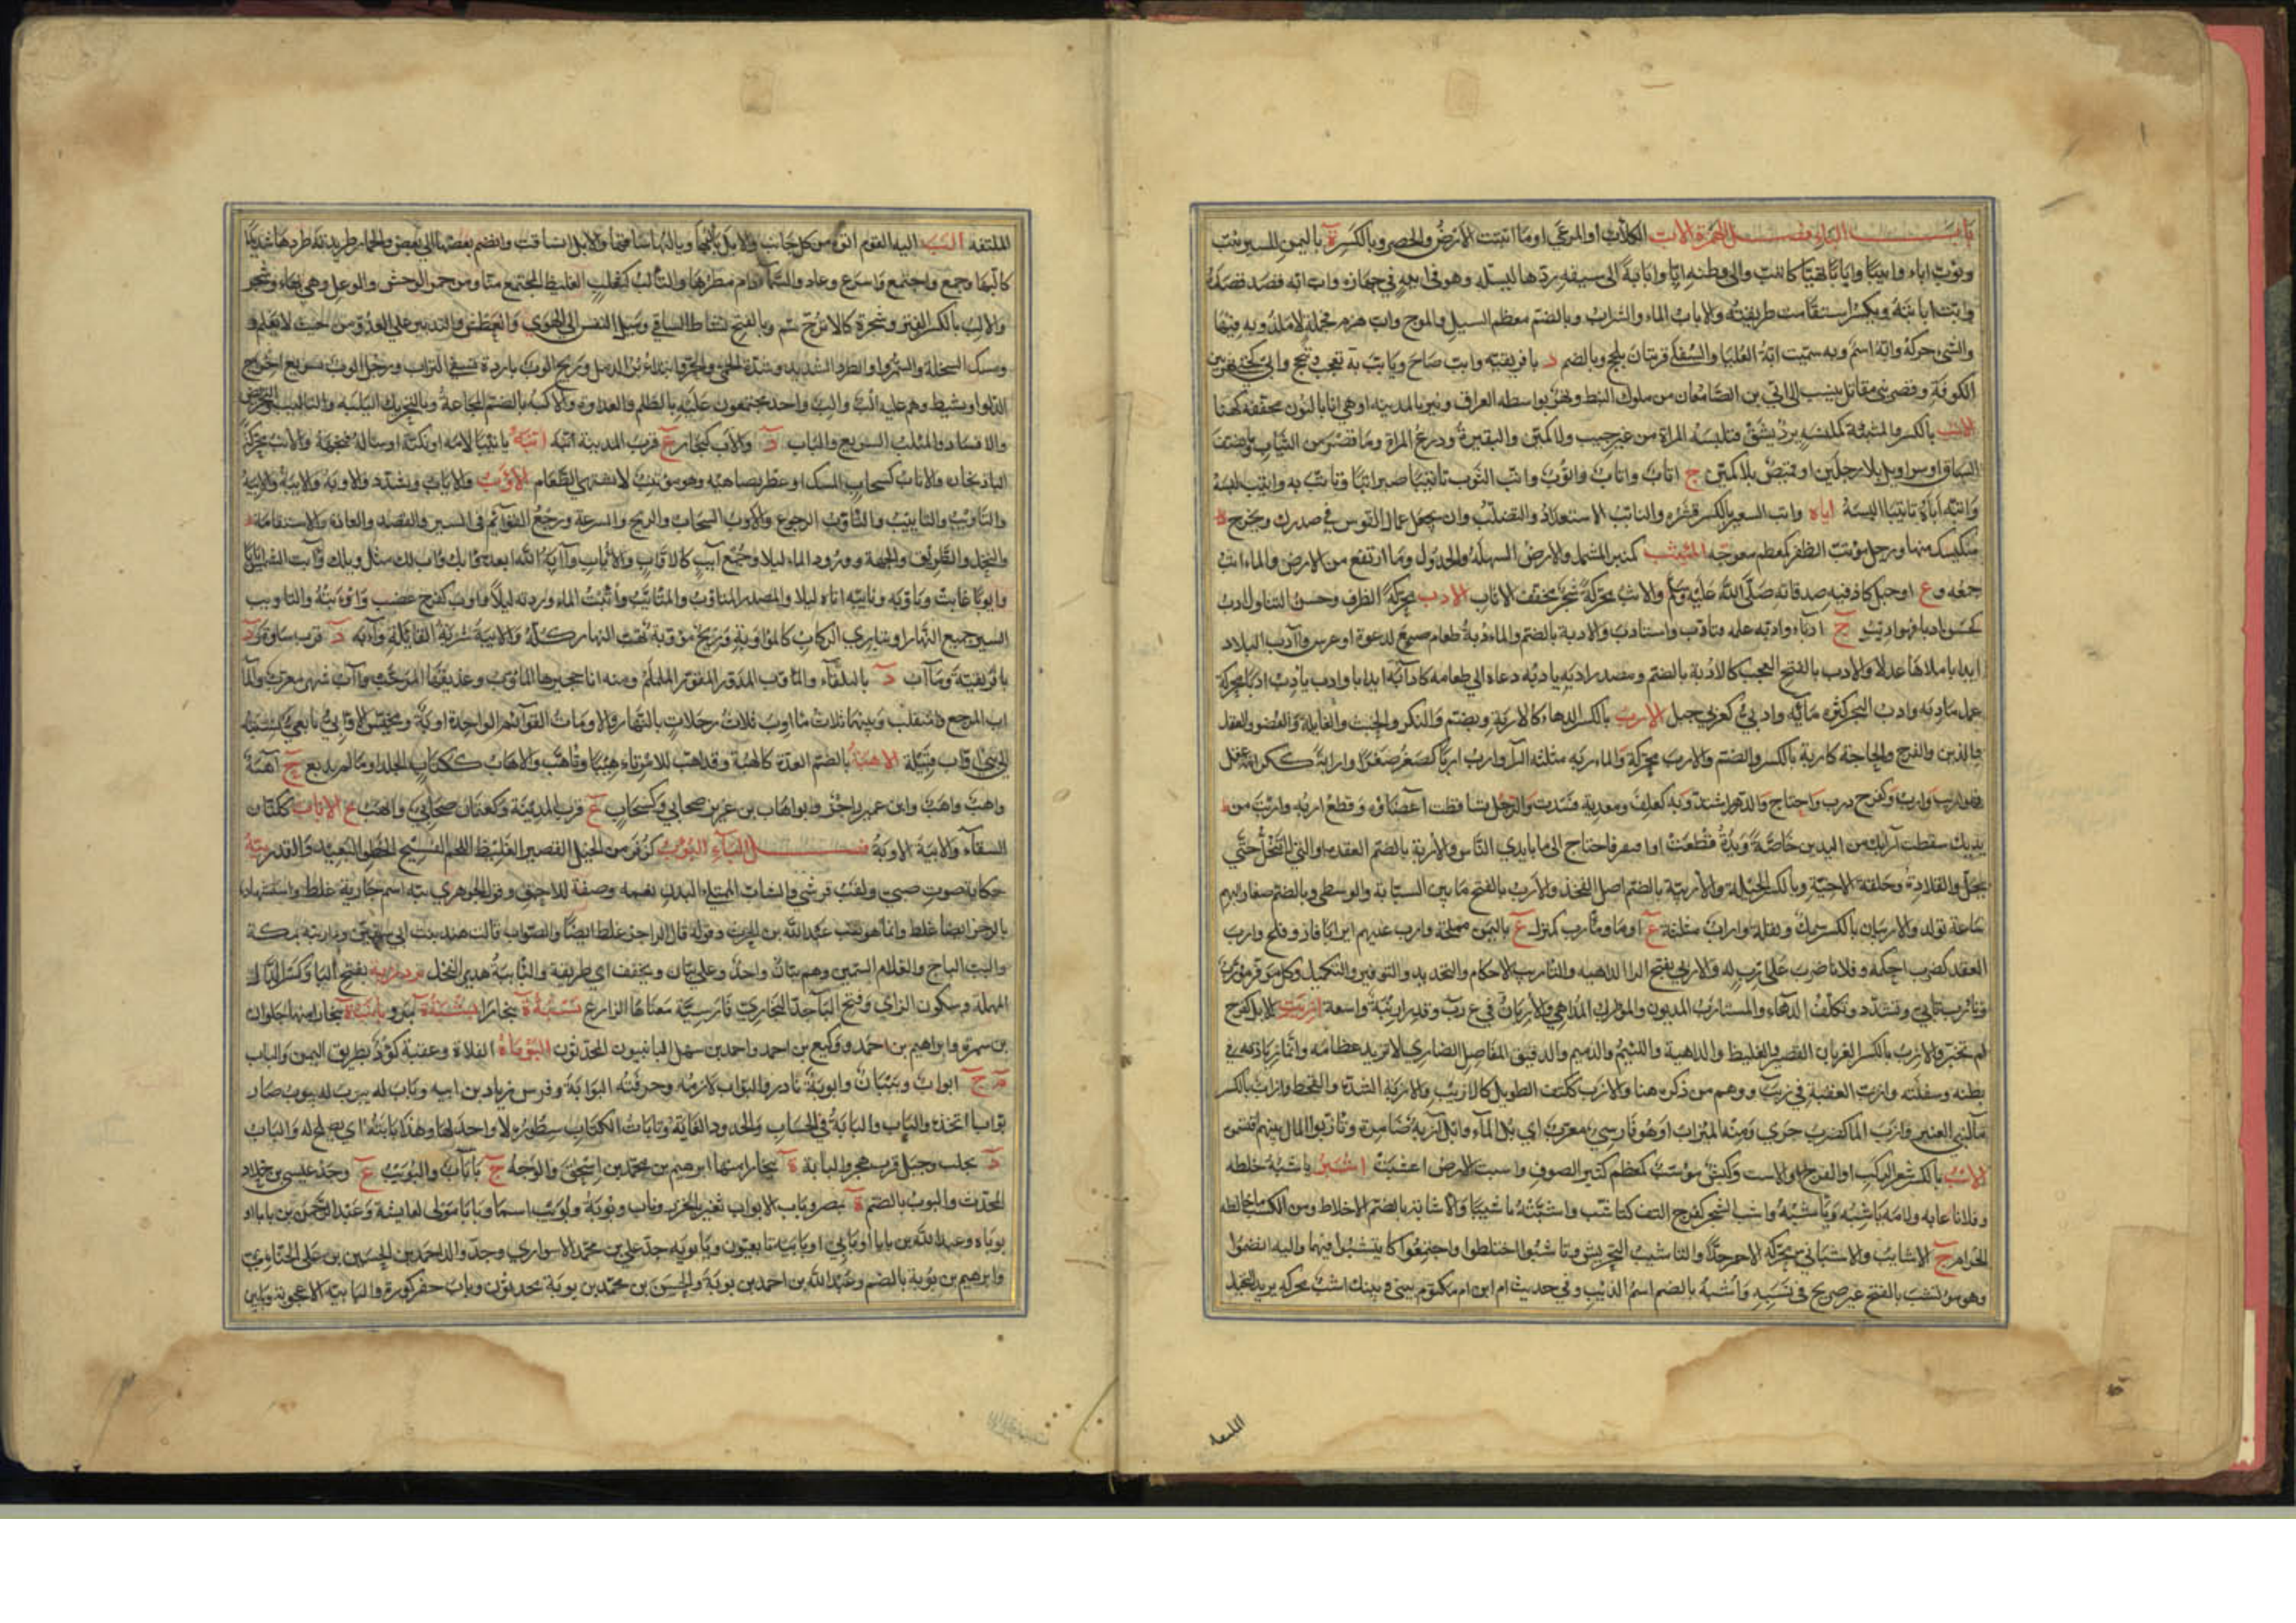 باب الباء فصل الهمزة الاب الكلأ او المرعى او ما انبتت الارض والخضر وبالكسر ة باليمن للسير يئب
ويؤب اباء وابيبا وابابا تهيا كائتب والى وطنه ابا وابابة الى سيفه رد يده ليستله وهو في ابابه في جهازه واب ابه قصد قصده
وابت ابابته ويكسر استقامت طريقته والاباب الماء والشراب وبالضم معظم السيل والموج واب هزم بحملة لا مكذوبة فيها
والشئ حركه وابة اسم وبه سميت ابة العليا والسفلى قريتان بلحج وبالضم د بافريقية وابب صاح وتابب به تعجب وتبجح وابى كحتى نهر بين
الكوفة وقصر بني مقاتل ينسب الى ابى بن الصامغان من ملوك النبط ونهر بواسط العراق وبئر بالمدينة او هي انا بالنون مخففة كهنا
الاتب بالكسر والمئتبة كمكنسة برد يشق فتلبسه المراة من غير جيب ولا كمين والبقيرة ودرع المراة وما قصر من الثياب فنصف
الساق او سراويل بلا رجلين او قميص بلا كمين ج اتاب واتاب واتوب واتب الثوب تاتيبا صير اتبا وتاتب به وائتب لبسه
واتبه اياه تاتيبا البسه اياه واتب الشعير بالكسر قشره والتاتب الاستعداد والتصلب وان تجعل حمال القوس في صدرك وتخرج
منكبيك منها ورجل مؤتب الظفر كمعظم معوجه المئثب كمنبر المشمل والارض السهلة والجدول وما ارتفع من الارض والماء اثب
جمعه و ع او جبل كان فيه صدقاته صلى الله عليه وسلم والاثب محركة شجر مخفف الاثاب الادب محركة الظرف وحسن التناول ادب
كحسن ادبا فهو اديب ج ادباء وادبه علمه فتادب واستادب والادبة بالضم والمادبة طعام صنع لدعوة او عرس وآدب البلاد
ايدابا ملاها عدلا والادب بالفتح العجب كالادبة بالضم ومصدر ادبه يادبه دعاه الى طعامه كآدبه ايدابا وادب يادب ادبا محركة
عمل مادبة وادب البحر كثرة مائه وادبي كعربي جبل الارب بالكسر الدهاء كالاربة ويضم والنكر والخبث والغائلة والعضو والعقل
والدين والفرج والحاجة كالاربة بالكسر والضم والارب محركة والماربة مثلثة الراء وارب اربا كصغر صغرا وارابة ككرامة عقل
فهو اريب وارب وكفرح درب واحتاج والدهر اشتد وبه كلف ومعدته فسدت والرجل تساقطت اعضاؤه وقطع اربه واربت من
يديك سقطت آرابك من اليدين خاصة ويده قطعت او افتقر فاحتاج الى ما بايدي الناس والاربة بالضم العقدة او التي لا تنحل حتى
تحل والقلادة وحلقة الاخية وبالكسر الحيلة والاربية بالضم اصل الفخذ والارب بالفتح ما بين السبابة والوسطى وبالضم صغار البهم
ساعة تولد والاربيان بالكسر سمك وبقلة واراب مثلثة ع او ماء ومارب كمنزل ع باليمن مملحة وارب عليهم ايرابا فاز وفلج وارب
العقد كضرب احكمه وفلانا ضرب على ارب له والاربى بفتح الراء الداهية والتاريب الاحكام والتحديد والتوفير والتكميل وكل موفر مؤرب
وتارب تابى وتشدد وتكلف الدهاء والمستارب المديون والمؤارب المداهي والاربان في ع ر ب وقدر اريبة واسعة ازبت الابل كفرح
لم تجتر والازب بالكسر القصير الغليظ والداهية واللئيم والدميم والدقيق المفاصل الضاوي لا تزيد عظامه وانما زيادته في
بطنه وسفلته وازب العقبة في ز ب ب ووهم من ذكره هنا والازب ككتف الطويل كالازيب والازبة الشدة والقحط وازاب بالكسر
ماء لبني العنبر وازب الماء كضرب جرى ومنه المئزاب او هو فارسي معرب اي بل الماء وابل آزبة ضامزة وتازبوا المال بينهم اقتسموه
الاسب بالكسر شعر الركب او الفرج او الاست وكبش مؤسب كمعظم كثير الصوف واسبت الارض اعشبت اشبه ياشبه خلطه
وفلانا عابه ولامه ياشبه وياشبه واشب الشجر كفرح التف كتاشب واشبته تاشيبا والاشابة بالضم الاخلاط ومن الكسب ما خالطه
الحرام ج الاشائب والاشباني محركة الاحمر جدا والتاشيب التحريش وتاشبوا اختلطوا واجتمعوا كائتشبوا فيهما واليه انضموا
وهو مؤتشب بالفتح غير صريح في نسبه واشبة بالضم اسم الذئب وفي حديث ام ابن ام مكتوم بيني وبينك اشب محركة يريد النخيل
الملتفة
الملتفة الب اليه القوم اتوه من كل جانب والابل يالبها ويالبها ساقها والابل انساقت وانضم بعضها الى بعض والحمار طريدته طردها شديدا
كالبها وجمع واجتمع واسرع وعاد والسماء دام مطرها والتالب كثعلب الغليظ المجتمع منا ومن حمر الوحش والوعل وهي بهاء وشجر
والالب بالكسر الفتر وشجرة كالاترج سم وبالفتح نشاط الساقي وميل النفس الى الهوى والعطش والتدبير على العدو من حيث لا يعلم و
ومسك السخلة والسم والطرد الشديد وشدة الحمى والحر وابتداء برء الدمل وريح الوب باردة تسفي التراب ورجل الوب سريع اخراج
الدلو او نشيط وهم عليه الب والب واحد مجتمعون عليه بالظلم والعداوة والالبة بالضم المجاعة وبالتحريك اليلبة والتاليب التحريض
والافساد والمئلب السريع والباب د والالاب كغراب ع قرب المدينة البه انبه تانيبا لامه او بكته او ساله فنجهه والانب محركة
الباذنجان والاناب كسحاب المسك او عطر يضاهيه وهو مؤتنب لا يشتهي الطعام الاوب والاياب ويشدد والاوبة والايبة والايبة
والتاويب والتاييب والتاوب الرجوع والاوب السحاب والريح والسرعة ورجع القوائم في السير والقصد والعادة والاستقامة
والنحل والطريق والجهة وورود الماء ليلا وجمع آيب كالاواب والاياب وآبه الله ابعده وآبك وآب لك مثل ويلك وآبت الشمس ايابا
وايوبا غابت وتاوبه وتايبه اتاه ليلا والمصدر المتاوب والمتايب وائتبت الماء وردته ليلا واوب كفرح غضب واوابته والتاويب
السير جميع النهار او تباري الركاب كالمواوبة وريح مؤوبة تهب النهار كله والايبة شربة القائلة وآبة د قرب ساوة و د
بافريقية ومآب د بالبلقاء والمآوب المدور المقور الململم ومنه انا حجيرها المآوب وعذيقها المرجب وآب شهر معرب والماب
المرجع والمنقلب وبينهما ثلاث مآوب ثلاث رحلات بالنهار والاوبات القوائم الواحدة اوبة ومخيس الاوابي تابعي نسبة
الى بني اواب قبيلة الاهبة بالضم العدة كالهبة وقد اهب للامر تاهيبا وتاهب والاهاب ككتاب الجلد او ما لم يدبغ ج آهبة
واهب واهب وابن عمير راجز وابو اهاب بن عزيز صحابي وكسحاب ع قرب المدينة وكعثمان صحابي والهب ع الاياب ككتان
السقاء والايبة الاوبة فصل الباء البؤب كزفر من الخيل القصير الغليظ اللحم الفسيح الخطو البعيد القدر ببة
حكاية صوت صبي ولقب قرشي والشاب الممتلئ البدن نعمة وصفة للاحمق وقول الجوهري ببة اسم جارية غلط واستشهاده
بالرجز ايضا غلط وانما هو لقب عبد الله بن الحرث وقوله قال الراجز غلط ايضا والصواب قالت هند بنت ابي سفيان ودار ببة بمكة
والبب الباج والغلام السمين وهم ببان واحد وعلى ببان ويخفف اي طريقة والبابية هدير الفحل بردزبه بفتح الباء وكسر الدال
المهملة وسكون الزاي وفتح الباء جد البخاري فارسية معناها الزارع بسبة ة ببخارا بشبة ة بمرو بانب ة ببخارا منها جلوان
بن سمرة وابراهيم بن احمد ووكيع بن احمد واحمد بن سهل البانبيون المحدثون البوباة الفلاة وعقبة كؤد بطريق اليمن والباب
م ج ابواب وبيبان وابوبة نادر والبواب لازمه وحرفته البوابة وفرس زياد بن ابيه وباب له يبوب صار
بوابا اتخذه والباب والبابة في الحساب والحدود الغاية وبابات الكتاب سطوره لا واحد لها وهذا بابته اي يصلح له والباب
د بحلب وجبل قرب هجر والبابة ة ببخارا منها ابرهيم بن محمد بن اسحق والوجه ج بابات والبويب ع وجد عيسى بن خلاد
المحدث والبوب بالضم ة بمصر وباب الابواب ثغر بالخزر وباب وبوبة وبويب اسماء وبابا مولى لعايشة وعبد الرحمن بن بابا او
بوباه وعبد الله بن بابا او بابي او بابية تابعيون وبابويه جد علي بن محمد الاسواري وجد والد احمد بن الحسين بن على الحنائي
وابرهيم بن بوبة بالضم وعبد الله بن احمد بن بوبة والحسن بن محمد بن بوبة محدثون وباب حفر كورة والبابية الاعجوبة وبابين